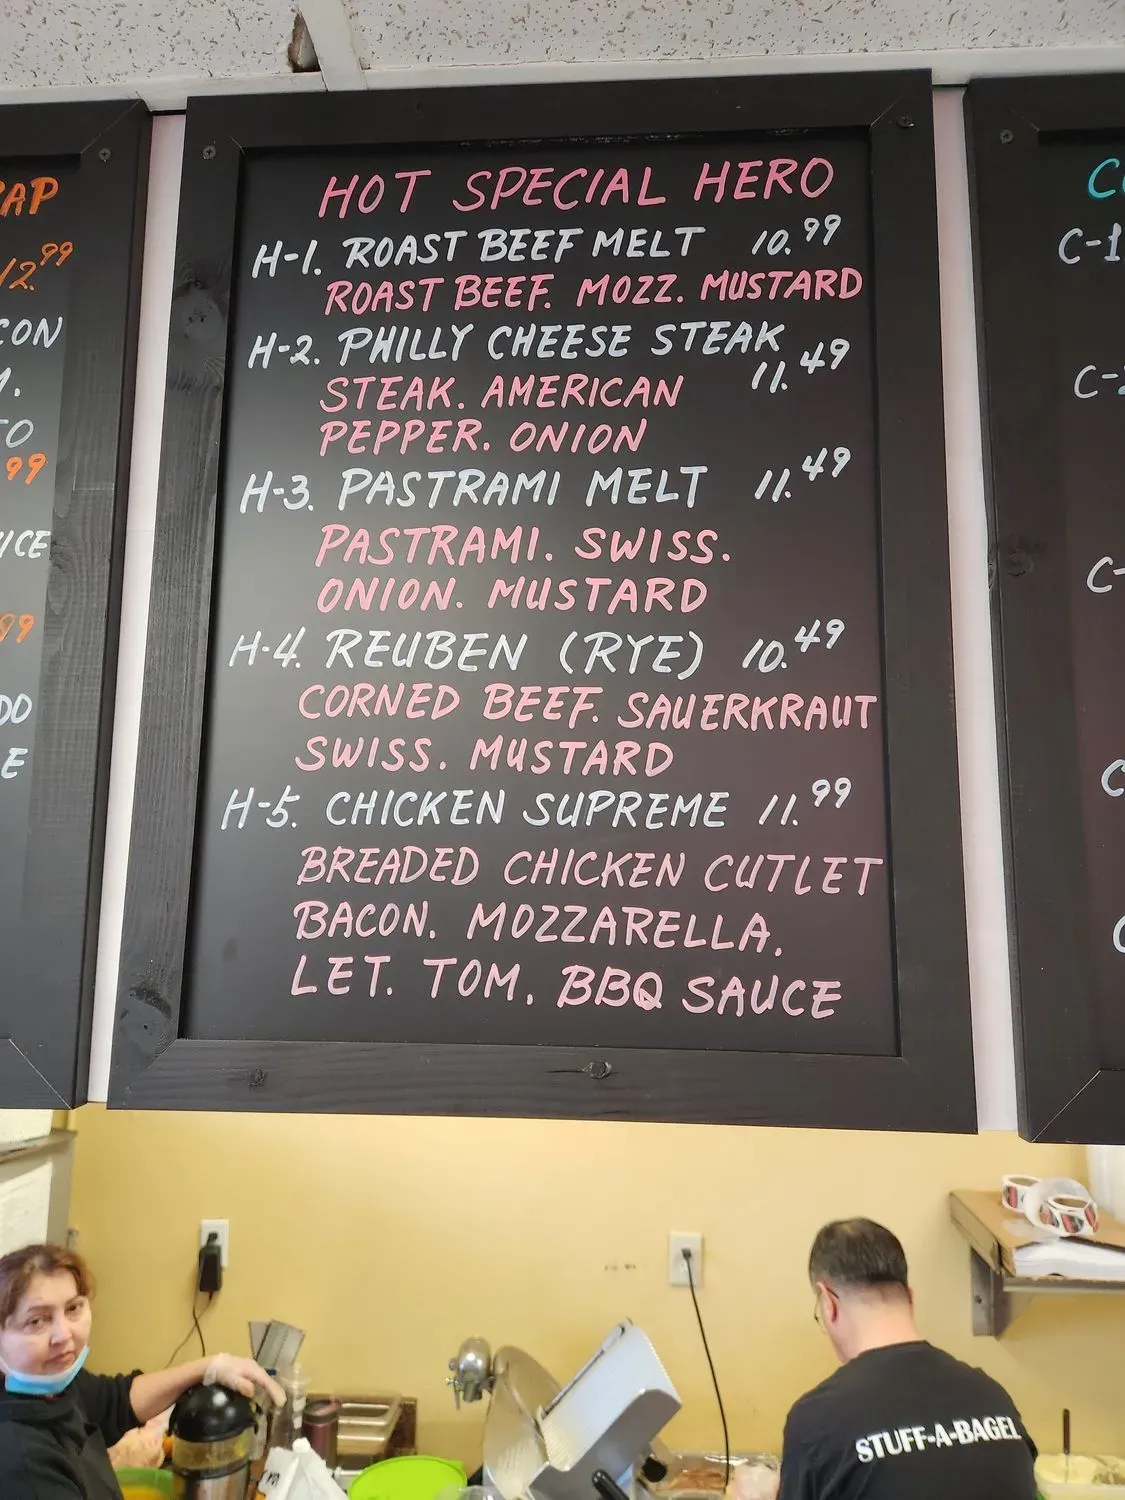 HOT SPECIAL HERO
H-1. ROAST BEEF MELT 10.99
ROAST BEEF. MOZZ. MUSTARD
H-2. PHILLY CHEESE STEAK
11.49
STEAK. AMERICAN
PEPPER. ONION
H-3. PASTRAMI MELT 11.49
PASTRAMI. SWISS.
ONION. MUSTARD
H-4. REUBEN (RYE) 10.49
CORNED BEEF. SAUERKRAUT
SWISS. MUSTARD
H-5. CHICKEN SUPREME 11.99
BREADED CHICKEN CUTLET
BACON. MOZZARELLA.
LET. TOM. BBQ SAUCE
STUFF-A-BAGEL